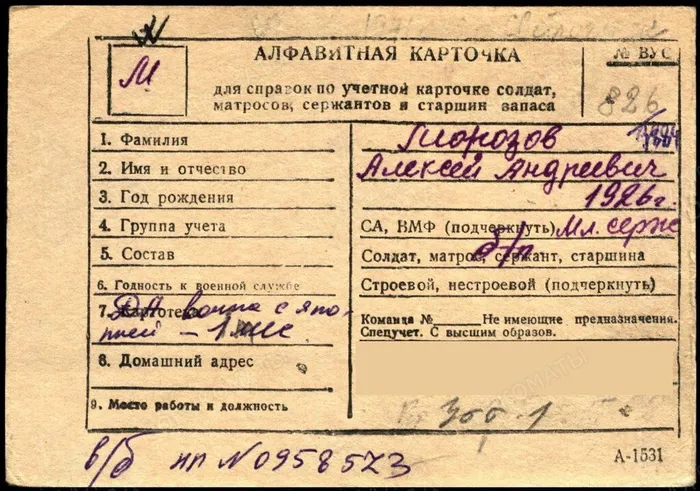 1971
М
АЛФАВИТНАЯ КАРТОЧКА
№ ВУС
для справок по учетной карточке солдат,
матросов, сержантов и старшин запаса
826
1. Фамилия
Морозов
2. Имя и отчество
Алексей Андреевич
3. Год рождения
1926 г.
4. Группа учета
СА, ВМФ (подчеркнуть) Мл. серж
5. Состав
б/п
Солдат, матрос, сержант, старшина
6. Годность к военной службе
Строевой, нестроевой (подчеркнуть)
7. Картотека
ДА война с япо-
нией – 1 мес
Команда № Не имеющие предназначения.
Спецучет. С высшим образов.
8. Домашний адрес
9. Место работы и должность
в/б нп N0958573
А-1531